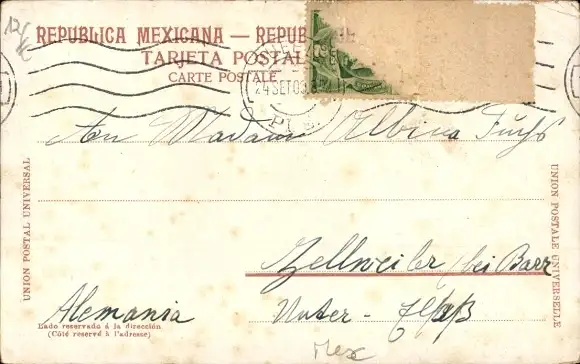 12 €
REPUBLICA MEXICANA — REPUB
TARJETA POSTAL
CARTE POSTALE
24 SET 09
An Madam Albina Fuchs
UNION POSTAL UNIVERSAL
UNION POSTALE UNIVERSELLE
Zellweiler bei Barr
Alemania
Unter-Elsaß
Lado reservado á la dirección
(Côté reservé à l'adresse)
Mex